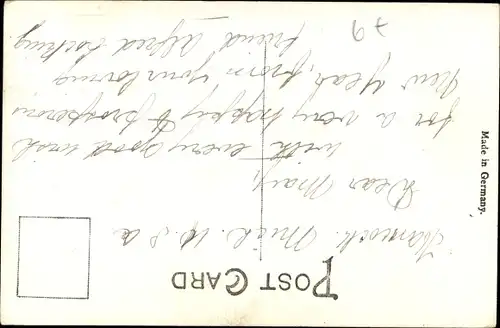 POST CARD
Hancock. Mich. U. S. a
Dear May,
with every good wish
for a very happy & prosperous
New Year, from your loving
friend Alfred
Made in Germany.